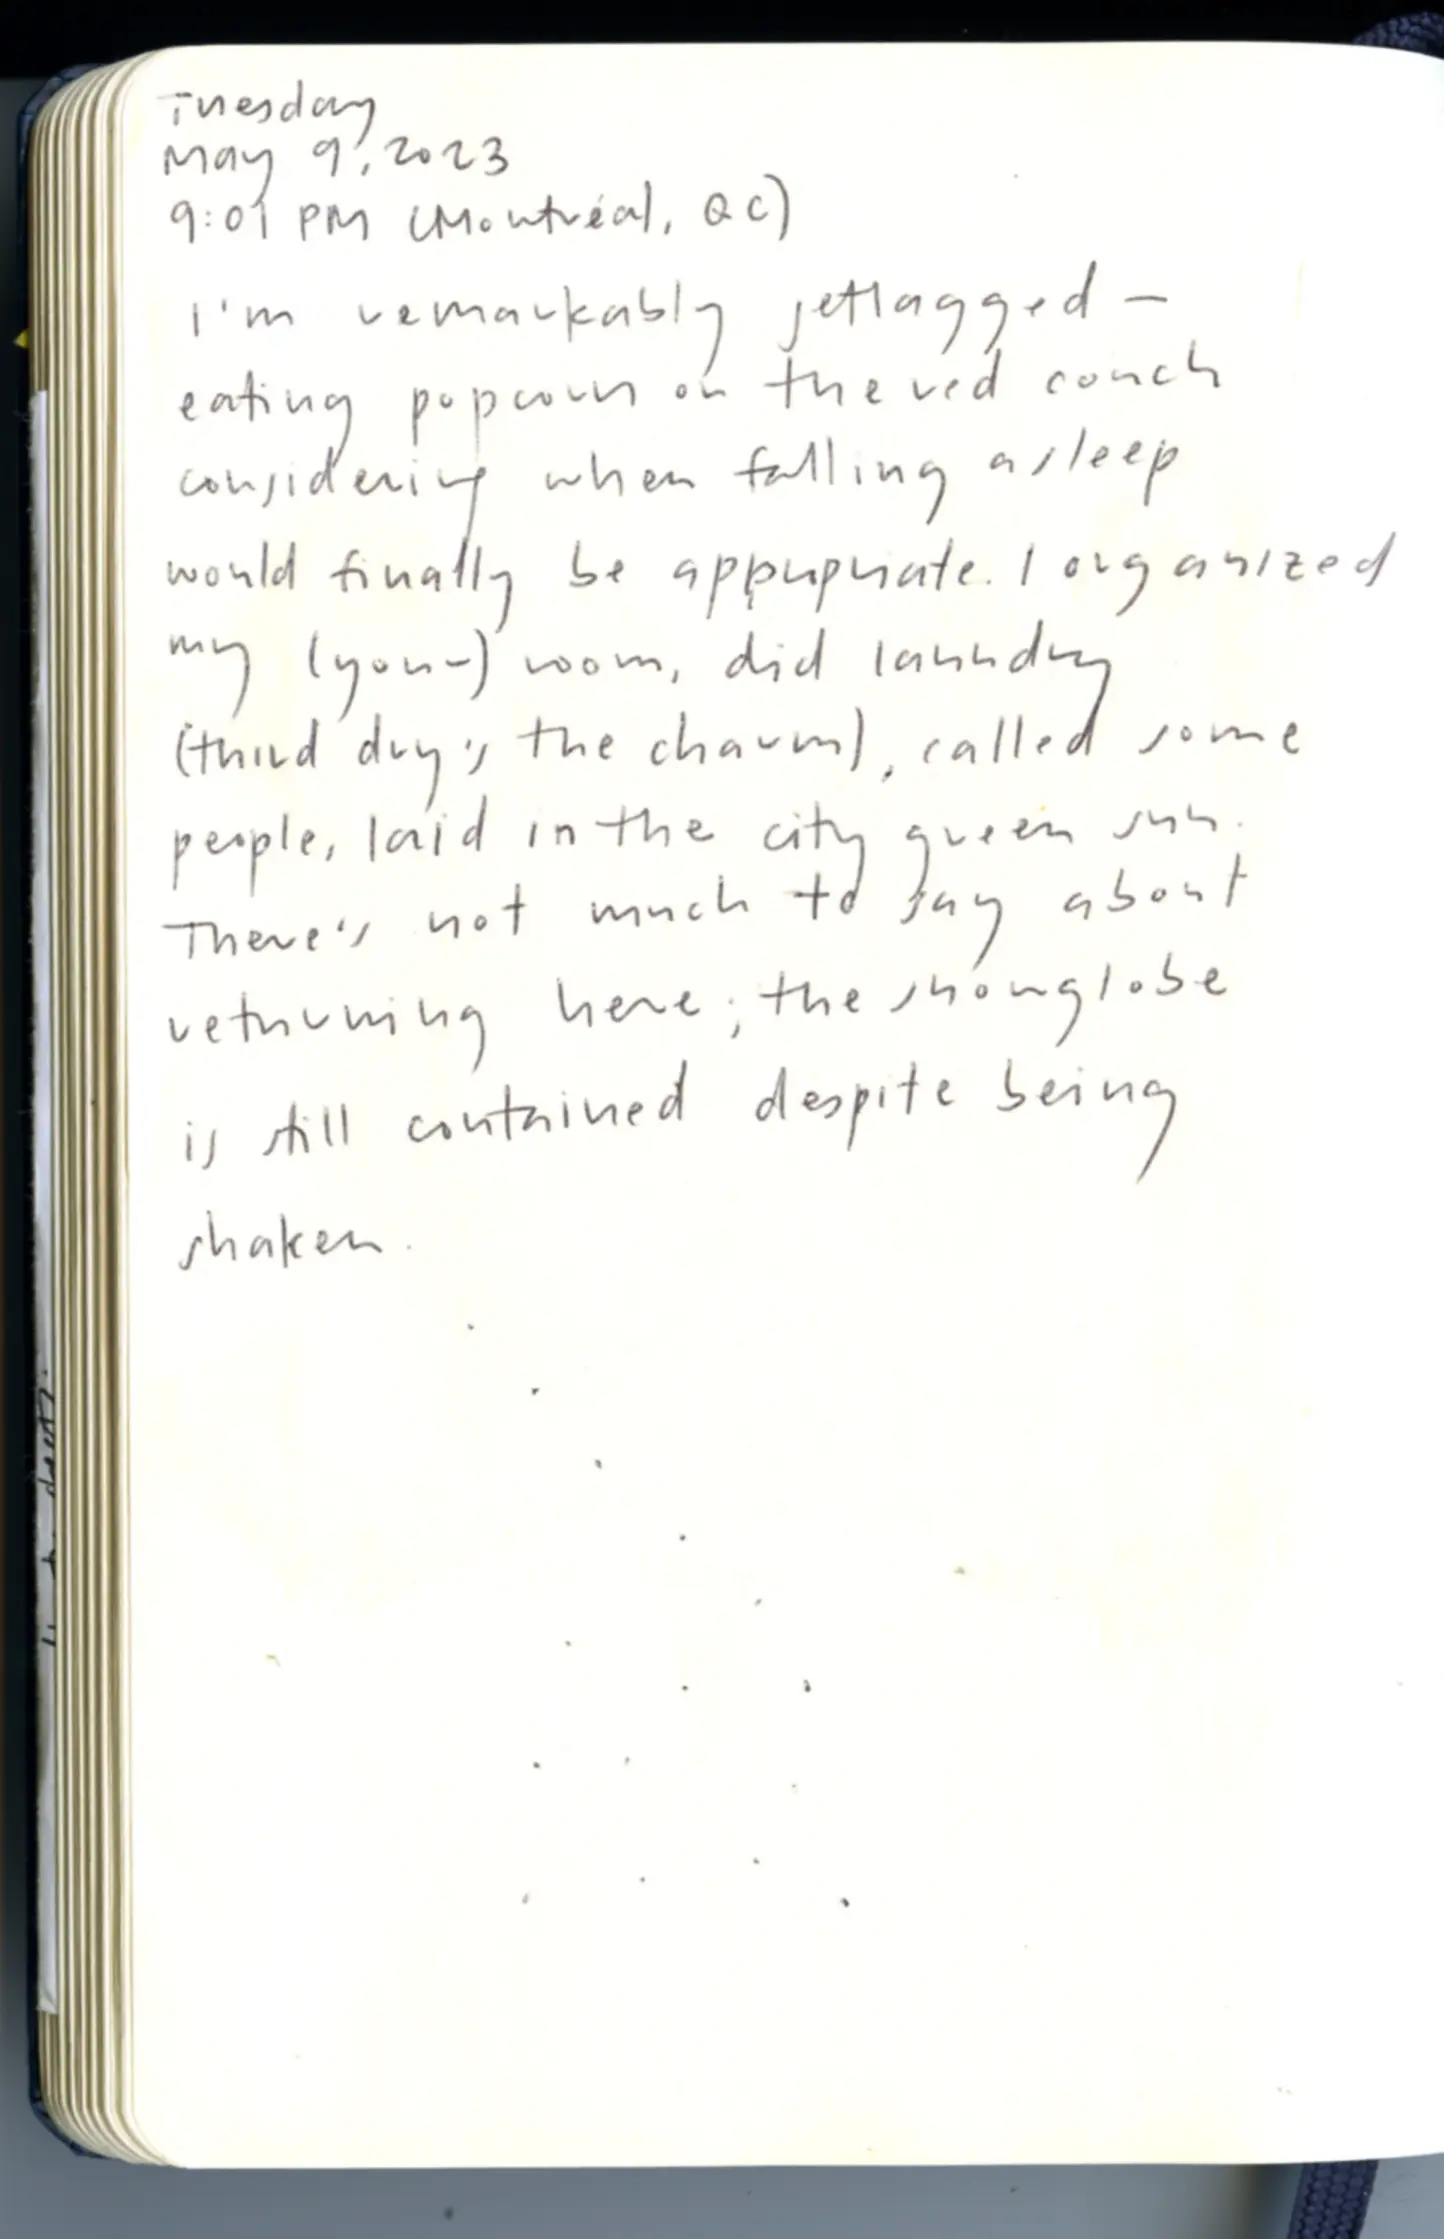 Tuesday
May 9, 2023
9:01 PM (Montréal, QC)
I'm remarkably jetlagged —
eating popcorn on the red couch
considering when falling asleep
would finally be appropriate. I organized
my (your) room, did laundry
(third dry's the charm), called some
people, laid in the city green sun.
There's not much to say about
returning here; the snowglobe
is still contained despite being
shaken.